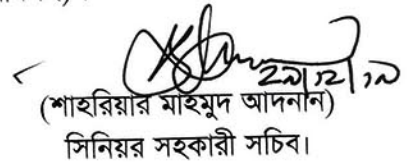 ২৯/১২/১৯
(শাহরিয়ার মাহমুদ আদনান)
সিনিয়র সহকারী সচিব।